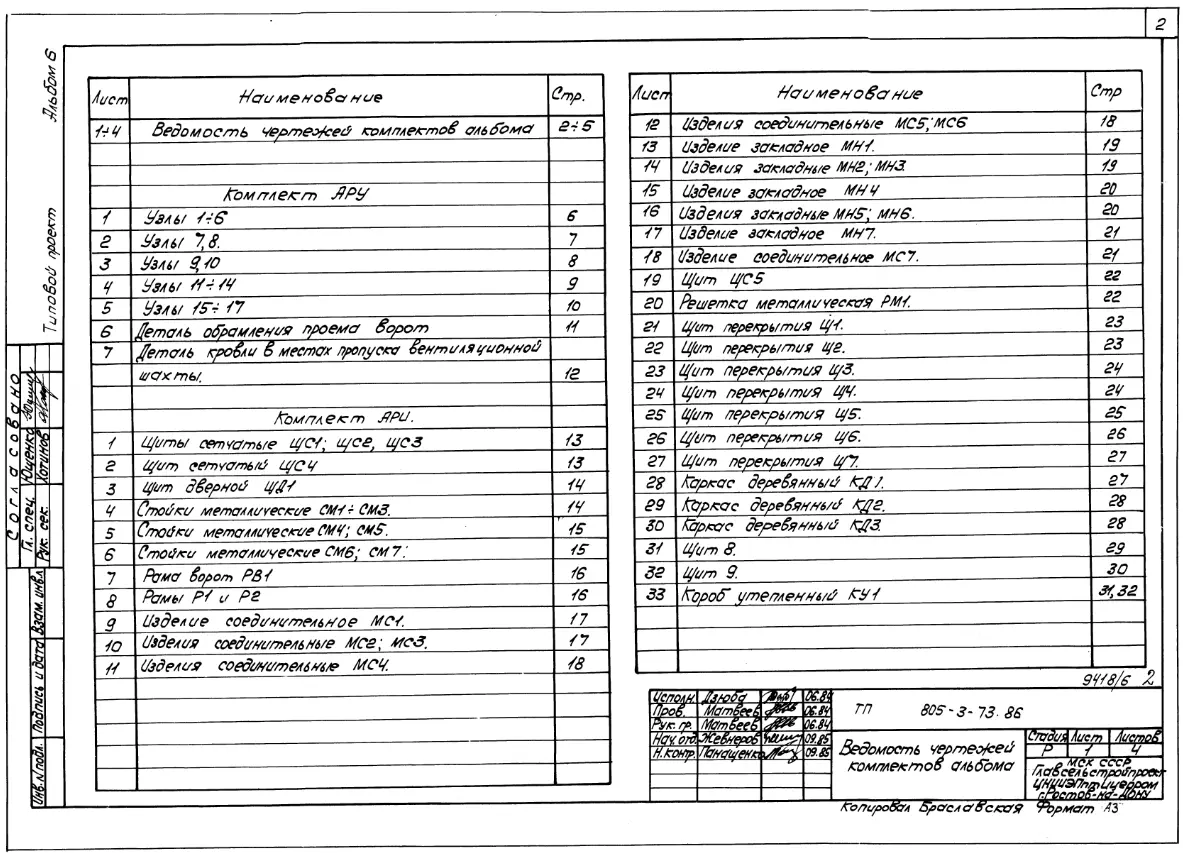 2
Альбом 6
Типовой проект
Лист Наименование Стр.
1÷4 Ведомость чертежей комплектов альбома 2÷5
Комплект АРУ
1 Узлы 1÷6 6
2 Узлы 7,8. 7
3 Узлы 9,10 8
4 Узлы 11÷14 9
5 Узлы 15÷17 10
6 Деталь обрамления проема ворот 11
7 Деталь кровли в местах пропуска вентиляционной
шахты. 12
Комплект АРИ.
1 Щиты сетчатые ЩС1; ЩС2, ЩС3 13
2 Щит сетчатый ЩС4 13
3 Щит дверной ЩД1 14
4 Стойки металлические СМ1÷СМ3. 14
5 Стойки металлические СМ4; СМ5. 15
6 Стойки металлические СМ6; СМ7. 15
7 Рама ворот РВ1 16
8 Рамы Р1 и Р2 16
9 Изделие соединительное МС1. 17
10 Изделия соединительные МС2; МС3. 17
11 Изделия соединительные МС4. 18
Лист Наименование Стр
12 Изделия соединительные МС5; МС6 18
13 Изделие закладное МН1. 19
14 Изделия закладные МН2; МН3. 19
15 Изделие закладное МН4 20
16 Изделия закладные МН5; МН6. 20
17 Изделие закладное МН7. 21
18 Изделие соединительное МС7. 21
19 Щит ЩС5 22
20 Решетка металлическая РМ1. 22
21 Щит перекрытия Щ1. 23
22 Щит перекрытия Щ2. 23
23 Щит перекрытия Щ3. 24
24 Щит перекрытия Щ4. 24
25 Щит перекрытия Щ5. 25
26 Щит перекрытия Щ6. 26
27 Щит перекрытия Щ7. 27
28 Каркас деревянный КД1. 27
29 Каркас деревянный КД2. 28
30 Каркас деревянный КД3. 28
31 Щит 8. 29
32 Щит 9. 30
33 Короб утепленный КУ1 31,32
9418/6 2
Исполн. Дзюба 06.84
Пров. Матвеев 06.84
Рук. гр. Матвеев 06.84
Нач. отд. Жевнеров 09.85
Н.контр. Панащенко 09.85
ТП 805-3-73.86
Ведомость чертежей
комплектов альбома
Стадия Лист Листов
Р 1 4
МСХ СССР
Главсельстройпроект
ЦНИИЭПптицепром
г.Ростов-на-Дону
Копировал Браславская Формат А3
Согласовано
Гл. спец. Ющенко
Рук. сек. Хатинов
Инв.№подл. Подпись и дата Взам. инв.№